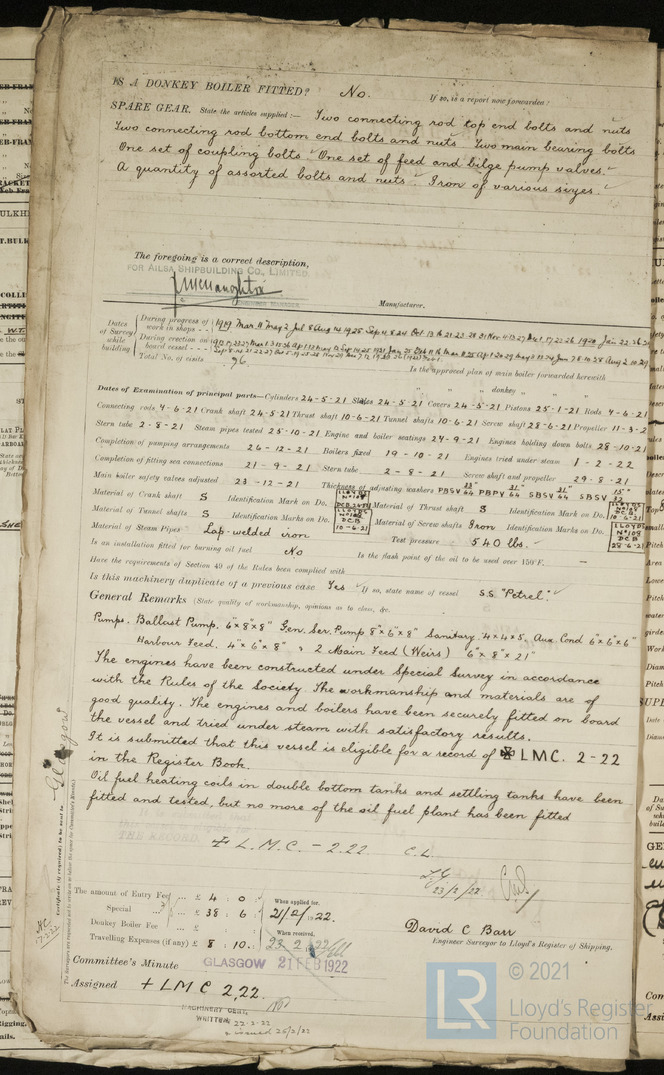 IS A DONKEY BOILER FITTED? No. If so, is a report now forwarded?
SPARE GEAR. State the articles supplied:— Two connecting rod top end bolts and nuts
Two connecting rod bottom end bolts and nuts. Two main bearing bolts
One set of coupling bolts. One set of feed and bilge pump valves.
A quantity of assorted bolts and nuts. Iron of various sizes.
The foregoing is a correct description,
FOR AILSA SHIPBUILDING CO., LIMITED
Manufacturer.
Dates of Survey while building
During progress of work in shops
During erection on board vessel
Total No. of visits 96
Is the approved plan of main boiler forwarded herewith
" " " donkey " " "
Dates of Examination of principal parts—Cylinders 24-5-21 Slides 24-5-21 Covers 24-5-21 Pistons 25-1-21 Rods 4-6-21
Connecting rods 4-6-21 Crank shaft 24-5-21 Thrust shaft 10-6-21 Tunnel shafts 10-6-21 Screw shaft 28-6-21 Propeller 11-3-2
Stern tube 2-8-21 Steam pipes tested 25-10-21 Engine and boiler seatings 24-9-21 Engines holding down bolts 28-10-21
Completion of pumping arrangements 26-12-21 Boilers fixed 19-10-21 Engines tried under steam 1-2-22
Completion of fitting sea connections 21-9-21 Stern tube 2-8-21 Screw shaft and propeller 29-8-21
Main boiler safety valves adjusted 23-12-21 Thickness of adjusting washers
Material of Crank shaft S Identification Mark on Do. Material of Thrust shaft S Identification Mark on Do.
Material of Tunnel shafts S Identification Marks on Do. LLOYDS No 108 DCB 10-6-21 Material of Screw shafts Iron Identification Marks on Do. LLOYDS No 108 DCB 28-6-21
Material of Steam Pipes Lap-welded iron Test pressure 540 lbs.
Is an installation fitted for burning oil fuel No Is the flash point of the oil to be used over 150°F. —
Have the requirements of Section 49 of the Rules been complied with
Is this machinery duplicate of a previous case Yes If so, state name of vessel S.S. "Petrel".
General Remarks (State quality of workmanship, opinions as to class, &c.
Pumps. Ballast Pump. 6"x8"x8" Gen. Ser. Pump 8"x6"x8" Sanitary. 4x4x5 Aux Cond 6"x6"x6"
Harbour Feed. 4"x6"x8" 2 Main Feed (Weirs) 6"x8"x21"
The engines have been constructed under Special Survey in accordance
with the Rules of the Society. The workmanship and materials are of
good quality. The engines and boilers have been securely fitted on board
the vessel and tried under steam with satisfactory results.
It is submitted that this vessel is eligible for a record of ✠ LMC. 2-22
in the Register Book.
Oil fuel heating coils in double bottom tanks and settling tanks have been
fitted and tested, but no more of the oil fuel plant has been fitted
+ L.M.C - 2.22 C.L.
23/2/22
The amount of Entry Fee £ 4 : 0 : When applied for.
Special £ 38 : 6 : 21/2/1922.
Donkey Boiler Fee £ When received.
Travelling Expenses (if any) £ 8 : 10 :
David C Barr
Engineer Surveyor to Lloyd's Register of Shipping.
Committee's Minute GLASGOW 21 FEB 1922
Assigned + LMC 2,22.
MACHINERY CERT.
WRITTEN 22-2-22
Glasgow
© 2021
LR
Lloyd's Register
Foundation